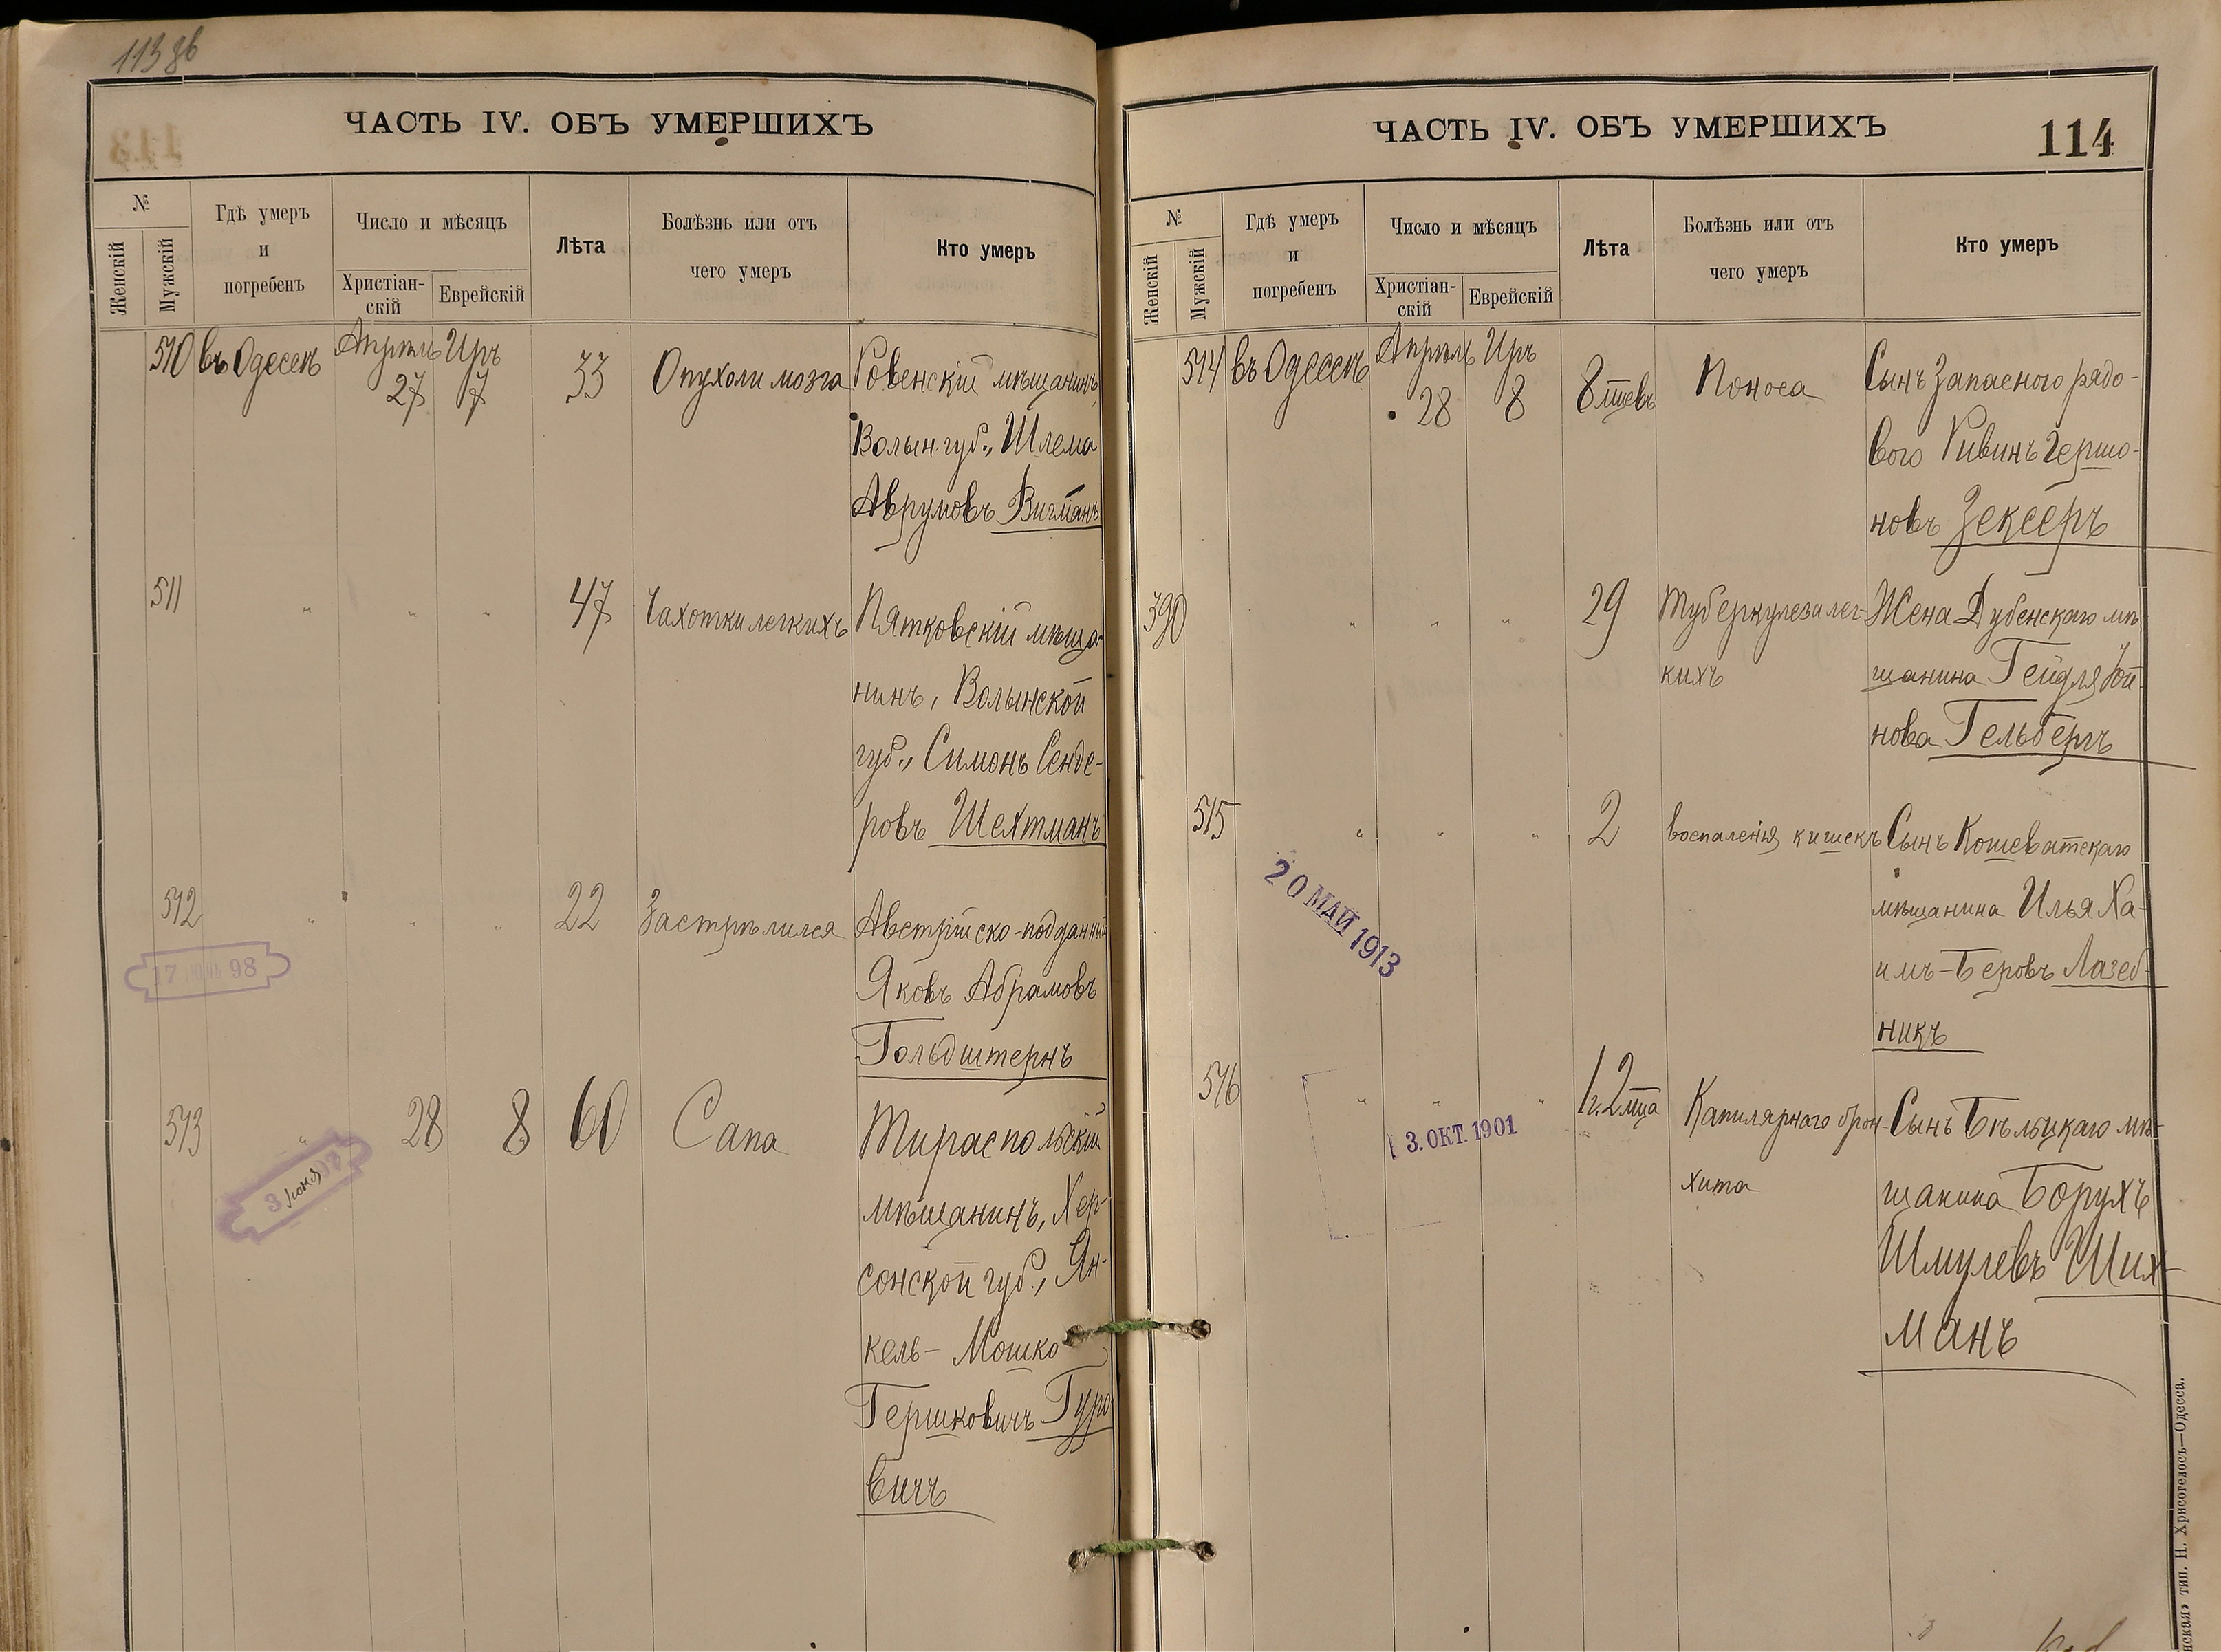 113 об
ЧАСТЬ IV. ОБЪ УМЕРШИХЪ
№
Женскій
Мужскій
Гдѣ умеръ
и
погребенъ
Число и мѣсяцъ
Христіан-
скій
Еврейскій
Лѣта
Болѣзнь или отъ
чего умеръ
Кто умеръ
510 въ Одессѣ Апрѣль Иръ
27 7 33 Опухоли мозга Ровенскій мѣщанинъ,
Волын. губ., Шлема
Аврумовъ Вигманъ
511 " " " 47 Чахотки легкихъ Пятковскій мѣща-
нинъ, Волынской
губ., Симонъ Сенде-
ровъ Шехтманъ
512 " " " 22 Застрѣлился Австрійско-подданный
17 98
Яковъ Абрамовъ
Гольдштернъ
513 " 28 8 60 Сапа Тираспольскій
3 Іюня 98
мѣщанинъ, Хер-
сонской губ., Ян-
кель-Мошко
Гершковичъ Гуро-
вичъ
ЧАСТЬ IV. ОБЪ УМЕРШИХЪ
114
№
Женскій
Мужскій
Гдѣ умеръ
и
погребенъ
Число и мѣсяцъ
Христіан-
скій
Еврейскій
Лѣта
Болѣзнь или отъ
чего умеръ
Кто умеръ
514 въ Одессѣ Апрѣль Иръ
28 8 8 мѣсвъ Поноса Сынъ Запасного рядо-
вого Ривинъ Гершо-
новъ Зексеръ
390 " " " 29 Туберкулеза лег- Жена Дубенскаго мѣ-
кихъ щанина Гейдля Юй-
нова Гельбергъ
515 " " " 2 воспаленія кишекъ Сынъ Кошеватскаго
20 МАЙ 1913
мѣщанина Илья Ха-
имъ-Беровъ Лазеб-
никъ
516 " " " 1 г. 2 мца Капилярнаго брон- Сынъ Бѣльцкаго мѣ-
3. ОКТ. 1901
хита щанина Борухъ
Шмулевъ Ших-
манъ
тип. Н. Хрисогелосъ—Одесса.